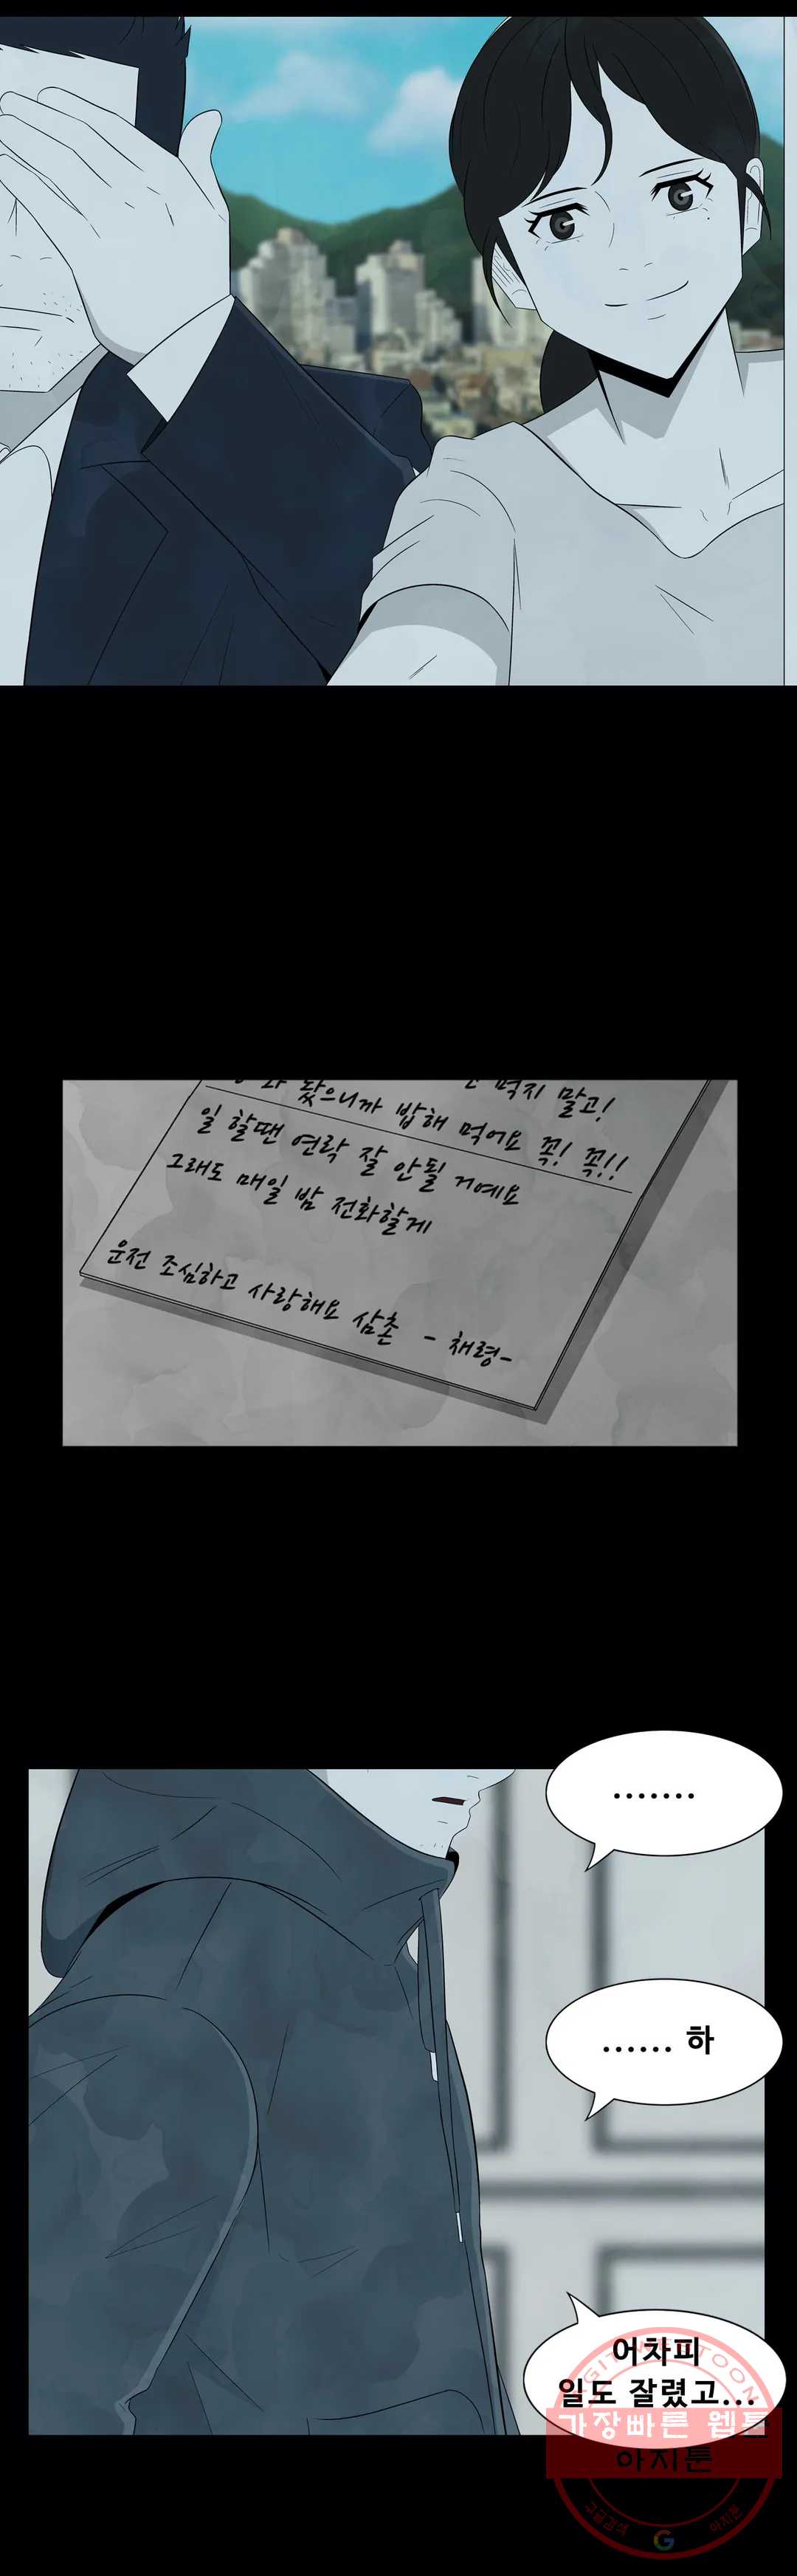 먹지 말고!
놨으니까 밥해 먹어요 꼭! 꼭!!
일 할땐 연락 잘 안될 거예요
그래도 매일 밤 전화할게
운전 조심하고 사랑해요 삼촌 - 채령-
.......
...... 하
어차피
일도 잘렸고...
가장빠른 웹툰
아지툰
AGIT WEBTOON
구글검색 G 아지툰